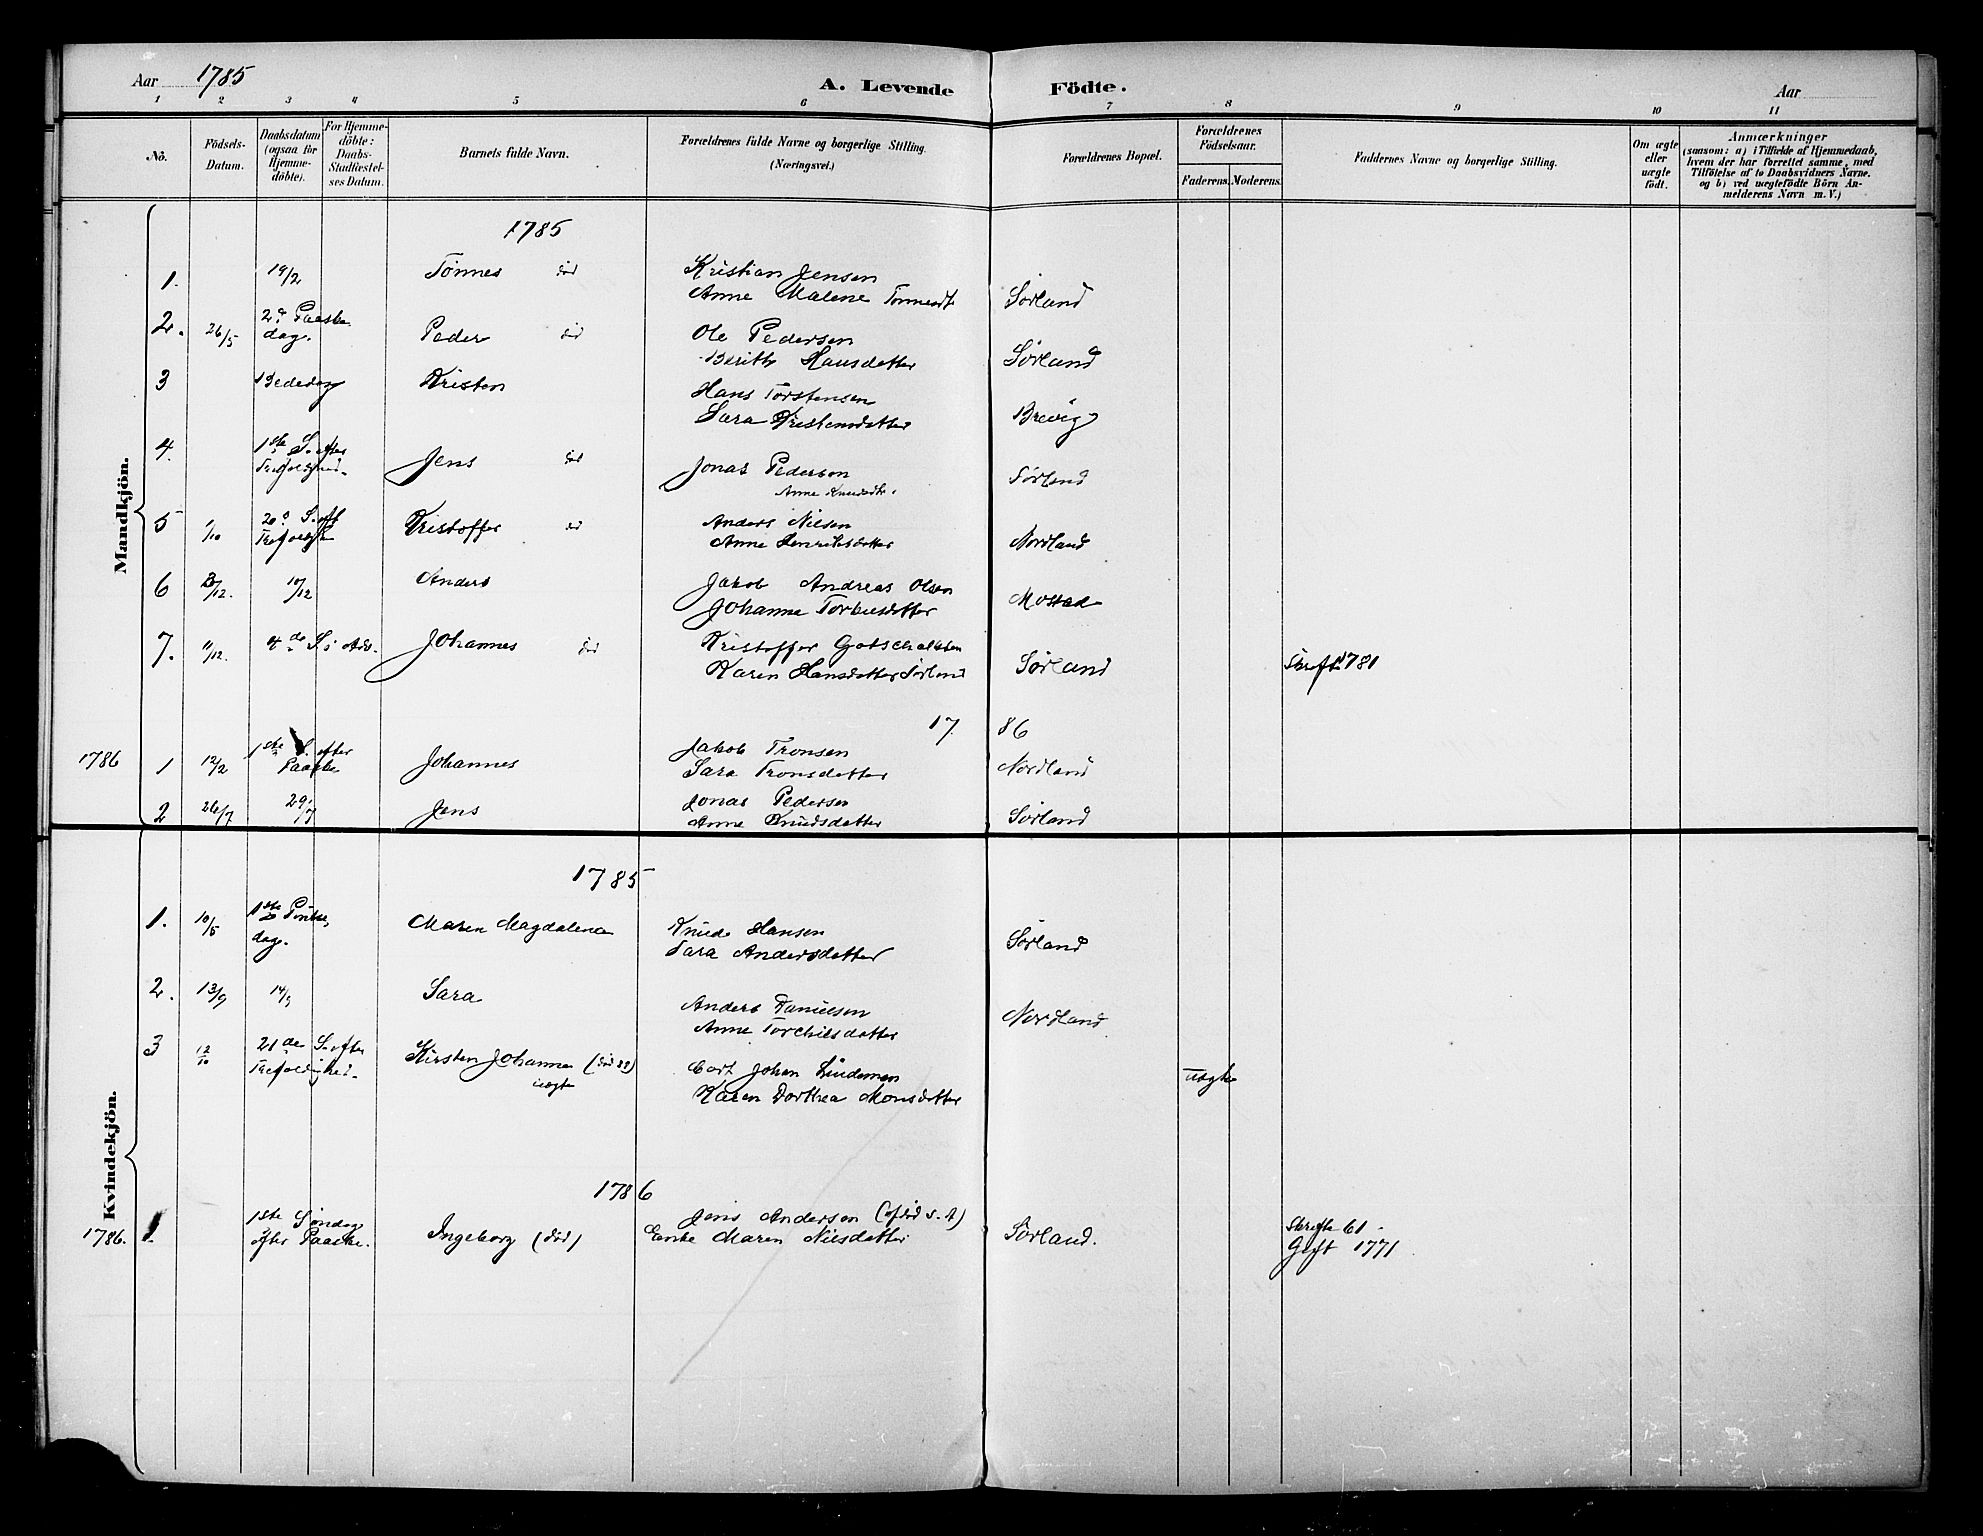 Aar 1785
A. Levende Födte.
Aar
1 2 3 4 5 6 7 8 9 10 11
No.
Födsels-
Datum.
Daabsdatum
(ogsaa för
Hjemme-
döbte).
For Hjemme-
döbte:
Daabs-
Stadfæstel-
ses Datum.
Barnets fulde Navn.
Forældrenes fulde Navne og borgerlige Stilling.
(Næringsvei.)
Forældrenes Bopæl.
Forældrenes
Födselsaar.
Faderens. Moderens.
Faddernes Navne og borgerlige Stilling.
Om ægte
eller
uægte
födt.
Anmærkninger
(saasom: a) i Tilfælde af Hjemmedaab,
hvem der har forrettet samme, med
Tilföielse af to Daabsvidners Navne.
og b) ved uægtefödte Börn An-
melderens Navn m. V.)
Mandkjön.
1785
1. 19/2 Tönnes död Kristian Jensen
Anne Malene Tönnesdt Sörland
2. 26/5 2d Paaske
dag. Peder död Ole Pedersen
Berith Hansdatter Sörland
3 Bededag Kristen Hans Torstensen
Sara Kristensdatter Brevig
4. 1ste S. efter
Trefoldighed. Jens död Jonas Pedersen
Anne Knudsdtr. Sörland
5 /10 20d S. eft
Trefoldigh Kristoffer död Anders Nilsen
Anne Henriksdatter Nordland
6 /12. 10/12 Anders Jakob Andreas Olsen
Johanne Torbersdatter Mostad
7. 11/12. 4de S. i Adv. Johannes död Kristoffer Gotschalksen
Karen Hansdatter Sörland Sörland Skrefte 1781
1786
1786 1 12/2 1ste S. efter
Paaske Johannes Jakob Tronsen
Sara Tronsdatter Nordland
2 26/7 29/7 Jens Jonas Pedersen
Anne Knudsdatter Sörland
Kvindekjön.
1785
1. 10/5 1ste Pintse
dag. Maren Magdalena Knud Hansen
Sara Andersdatter Sörland
2. 13/9 14/9 Sara Anders Danielsen
Anne Torchilsdatter Nordland
3 12/10 21de S. efter
Trefoldighed. Kirsten Johanne (död 88)
uægte Cort Johan Lindeman
Karen Dorthea Monsdatter uægte
1786
1786. 1. 1ste Söndag
efter Paaske. Ingeborg (död) Jens Andersen (afdöd s. A)
Enke Maren Nilsdatter Sörland. Skrefte 61.
Gift 1771